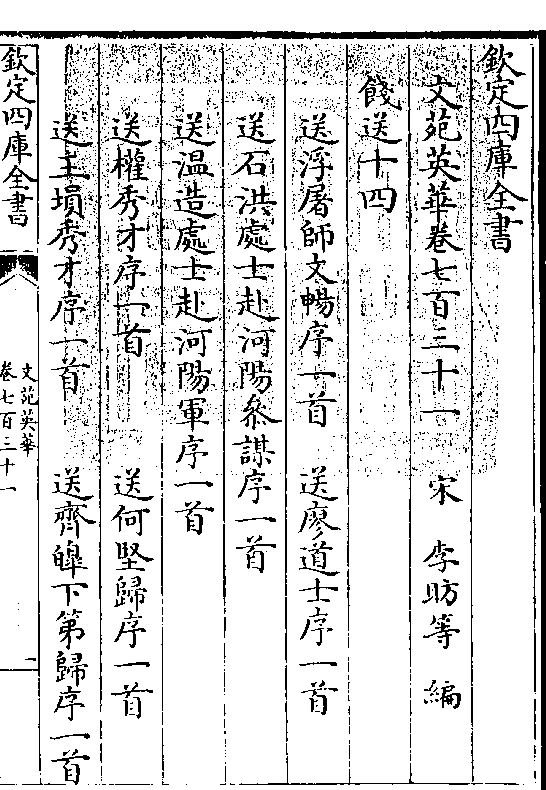 欽定四庫全書
文苑英華卷七百三十一　宋　李昉等　編
餞送十四
送浮屠師文暢序一首　送廖道士序一首
送石洪處士赴河陽叅謀序一首
送温造處士赴河陽軍序一首
送權秀才序一首　送何堅歸序一首
送王塤秀才序一首　送齊皥下第歸序一首
欽定四庫全書
文苑英華
卷七百三十一
一